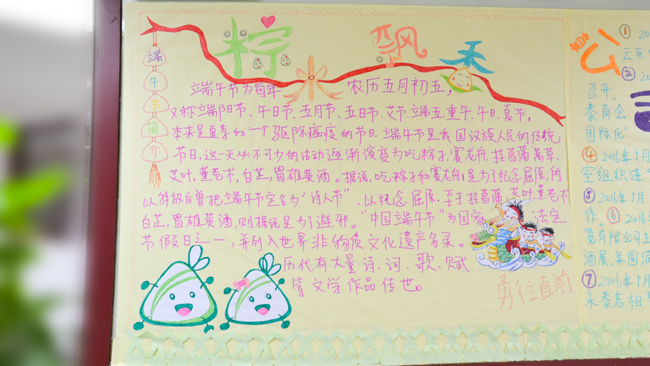 粽飘香
端午
端午节为每年农历五月初五,
又称端阳节、午日节、五月节、五日节、艾节、端五、重午、午日、夏节,
本来是夏季的一个驱除瘟疫的节日,端午节是我国汉族人民的传统
节日,这一天必不可少的活动逐渐演变为吃粽子,赛龙舟,挂菖蒲、蒿草、
艾叶,薰苍术、白芷,喝雄黄酒。据说,吃粽子和赛龙舟,是为了纪念屈原,所
以解放后曾把端午节定名为“诗人节”,以纪念屈原。至于挂菖蒲、艾叶,薰苍术、
白芷,喝雄黄酒,则据说是为了避邪。“中国端午节”为国家法定
节假日之一,并列入世界非物质文化遗产名录。
历代有大量诗、词、歌、赋
等文学作品传世。
勇往直前
公
① 201
云
② 20
召开.
泰商会
国际化
④ 2016年5月
会组织进
⑤ 2016年5月
作. ⑥ 2016
览有限公司
酒展、美国
⑦ 2016年5月
永泰志相